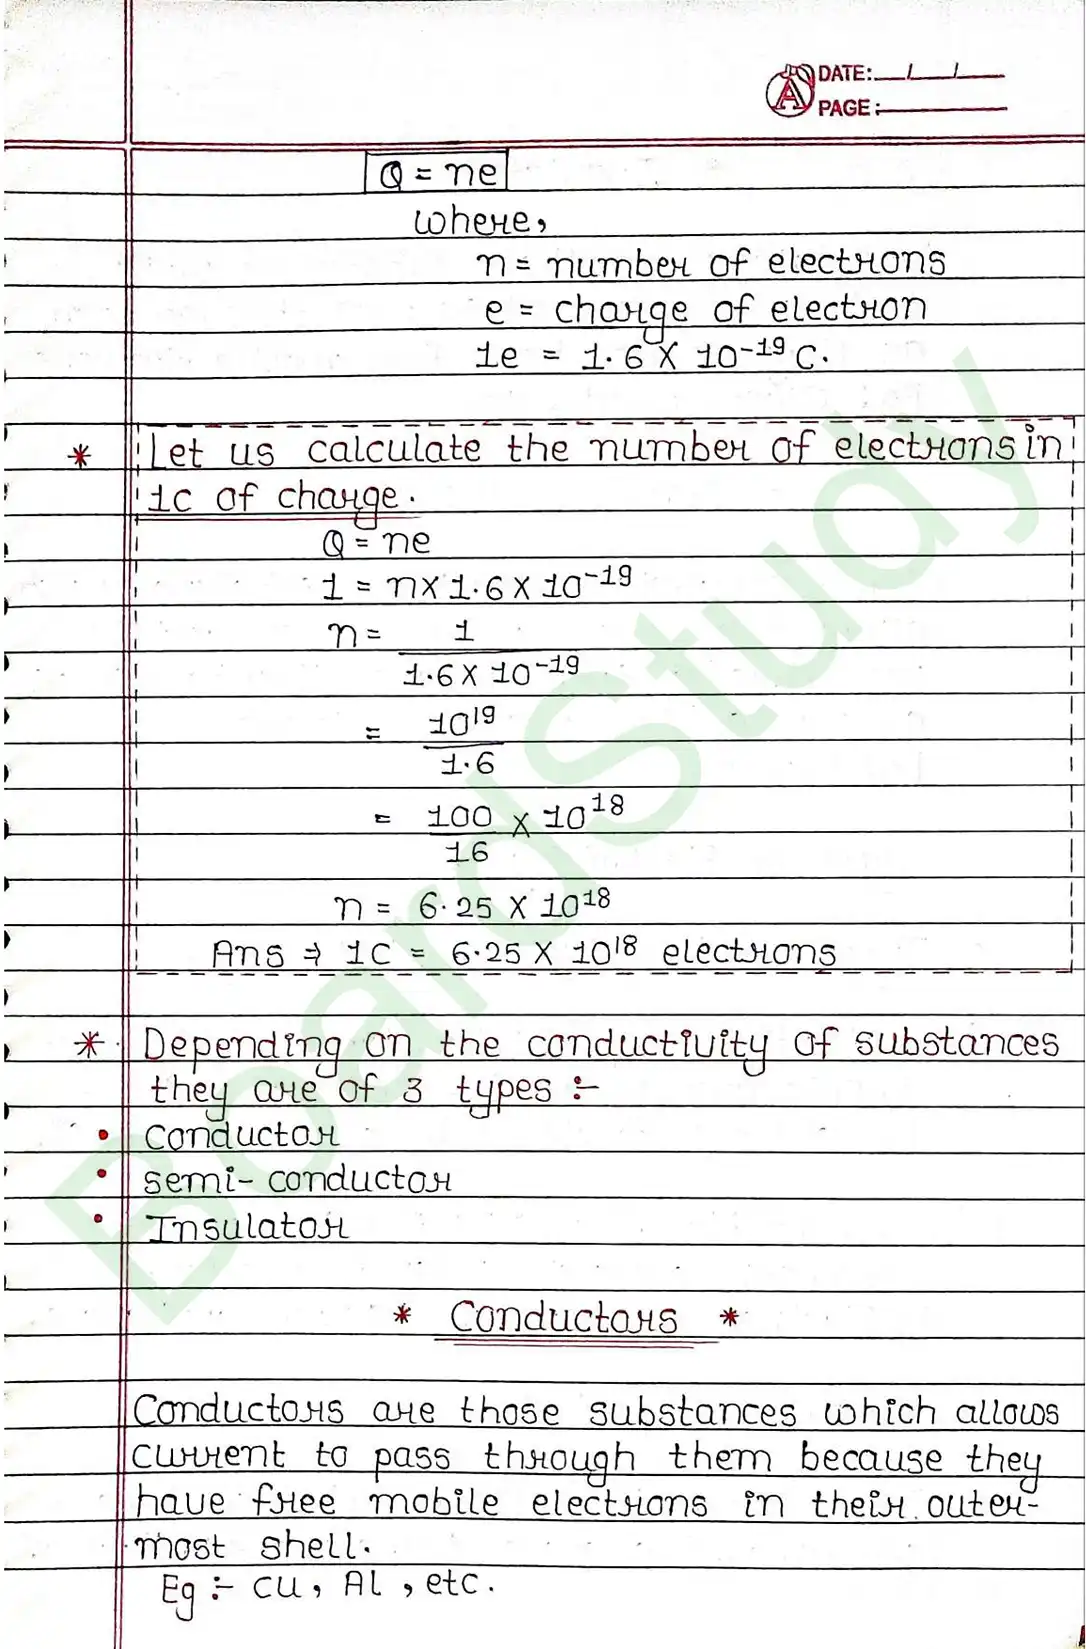 DATE: / /
PAGE:
Q = ne
where,
n = number of electrons
e = charge of electron
1e = 1.6 X 10⁻¹⁹ C.
* Let us calculate the number of electrons in
1C of charge.
Q = ne
1 = n X 1.6 X 10⁻¹⁹
n = 1
1.6 X 10⁻¹⁹
= 10¹⁹
1.6
= 100 X 10¹⁸
16
n = 6.25 X 10¹⁸
Ans ⇒ 1C = 6.25 X 10¹⁸ electrons
* Depending on the conductivity of substances
they are of 3 types :-
• Conductor
• semi-conductor
• Insulator
* Conductors *
Conductors are those substances which allows
current to pass through them because they
have free mobile electrons in their outer-
most shell.
Eg :- Cu, Al, etc.
BoardStudy